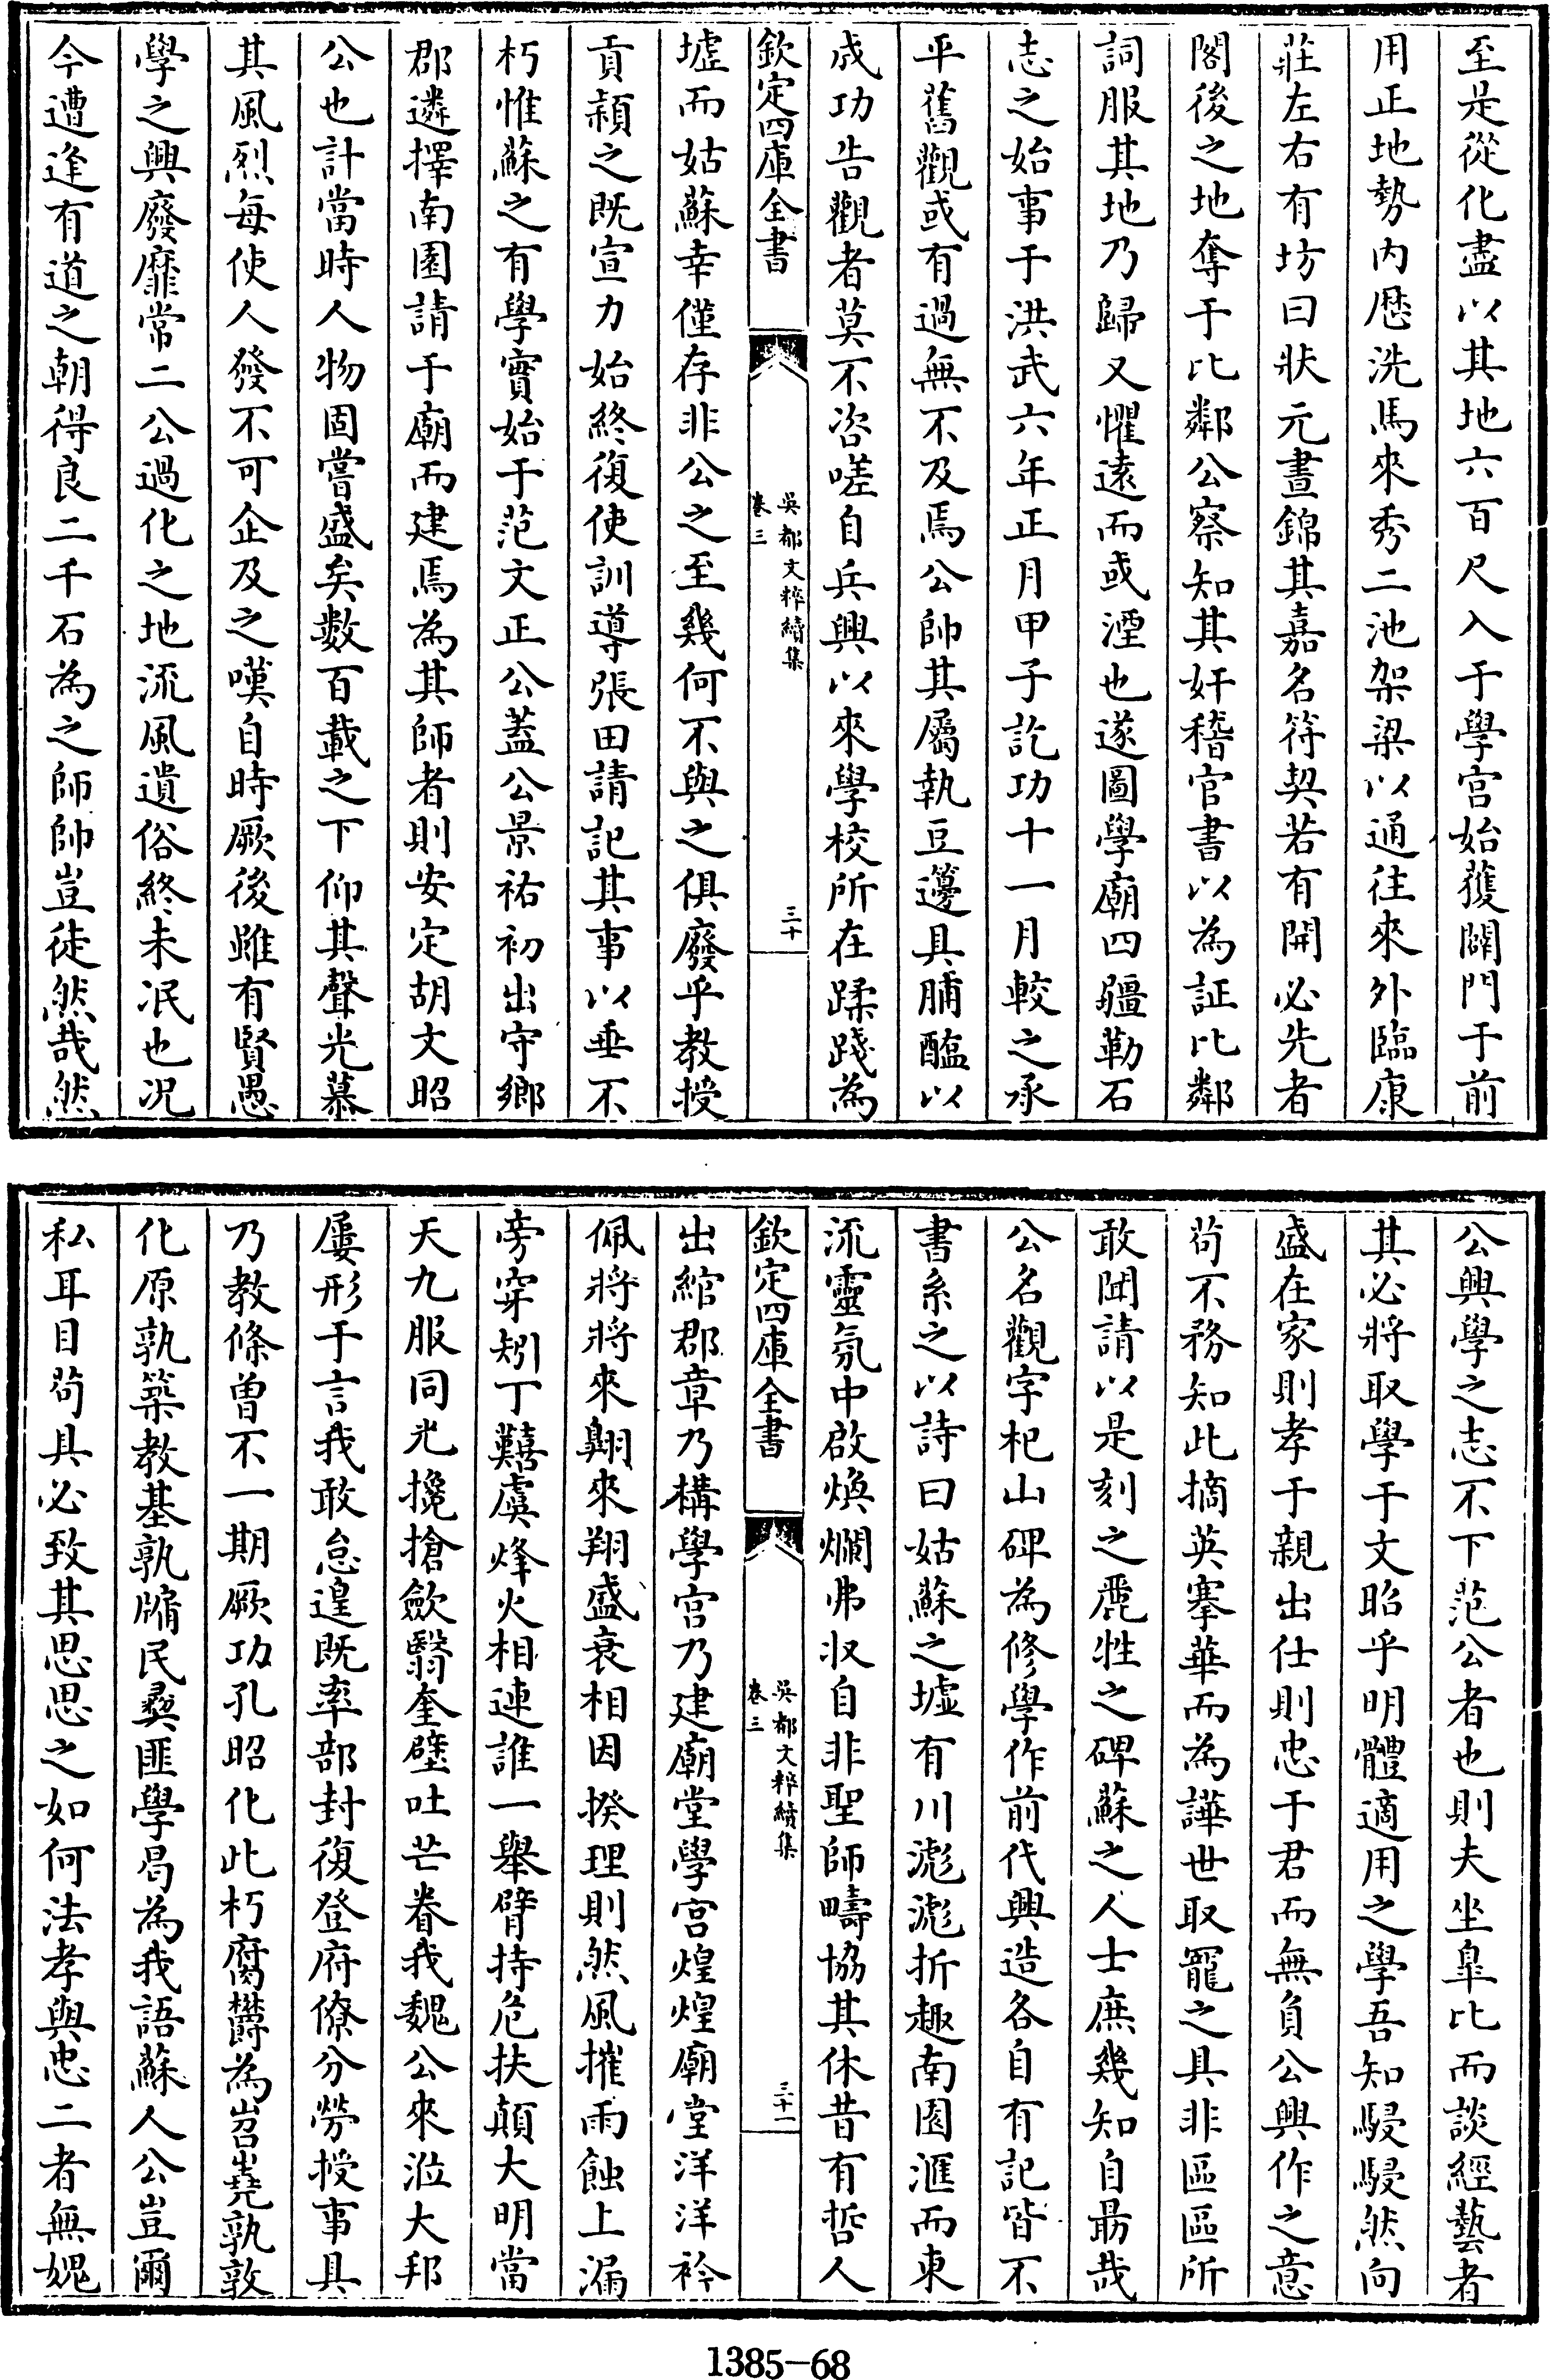 至是從化盡以其地六百尺入于學宫始獲闢門于前
用正地勢内厯洗馬來秀二池架梁以通往來外臨康
莊左右有坊曰狀元晝錦其嘉名符契若有開必先者
閣後之地奪于比鄰公察知其奸稽官書以為証比鄰
詞服其地乃歸又懼逺而或湮也遂圖學廟四疆勒石
志之始事于洪武六年正月甲子訖功十一月較之承
平舊觀或有過無不及焉公帥其屬執豆籩具脯醢以
成功告觀者莫不咨嗟自兵興以來學校所在蹂踐為
欽定四庫全書
吳都文粹續集
卷三
三十
墟而姑蘇幸僅存非公之至幾何不與之俱廢乎教授
貢頴之既宣力始終復使訓導張田請記其事以垂不
朽惟蘇之有學實始于范文正公蓋公景祐初出守鄉
郡遴擇南園請于廟而建焉為其師者則安定胡文昭
公也計當時人物固嘗盛矣数百載之下仰其聲光慕
其風烈每使人發不可企及之嘆自時厥後雖有賢愚
學之興廢靡常二公過化之地流風遺俗終未冺也况
今遭逢有道之朝得良二千石為之師帥豈徒然哉然
公興學之志不下范公者也則夫坐臯比而談經藝者
其必將取學于文昭乎明體適用之學吾知駸駸然向
盛在家則孝于親出仕則忠于君而無負公興作之意
苟不務知此摘英搴華而為譁世取寵之具非區區所
敢聞請以是刻之麗牲之碑蘇之人士庶幾知自勗哉
公名觀字杞山碑為修學作前代興造各自有記皆不
書系之以詩曰姑蘇之墟有川滮滮折趣南園滙而東
流靈氛中啟煥爛弗收自非聖師疇協其休昔有哲人
欽定四庫全書
吳都文粹續集
卷三
三十一
出綰郡章乃構學宫乃建廟堂學宫煌煌廟堂洋洋衿
佩將將來翺來翔盛衰相因揆理則然風摧雨蝕上漏
旁穿矧丁囏虞烽火相連誰一舉臂持危扶顛大明當
天九服同光攙搶歛翳奎璧吐芒眷我魏公來涖大邦
屢形于言我敢怠遑既率部封復登府僚分勞授事具
乃教條曾不一期厥功孔昭化此朽腐欝為岧嶤孰敦
化原孰築教基孰牖民彛匪學曷為我語蘇人公豈爾
私耳目苟具必致其思思之如何法孝與忠二者無媿
1385-68